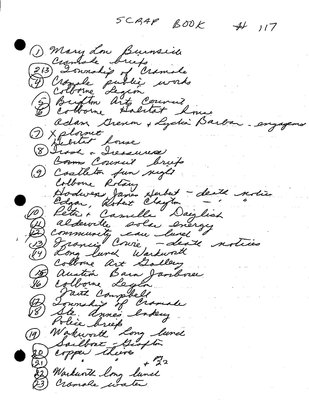 SCRAP BOOK # 117
① Mary Lou Burnside
Cramahe briefs
2 & 3 Township of Cramahe
④ Cramahe public works
Colborne Legion
⑤ Brighton Art Council
⑥ Colborne Habitat house
Adam Drenon + Lydia Barban - engagem
⑦ Xplornet
Habitat house
⑧ Trash + Treasures
Council briefs
⑨ Castleton fun night
Colborne Rotary
Herbert - death notice
Edgar, Robert Clayton - " "
⑩ Pete + Camilla Dalglish
⑪ Alderville solar energy
⑫ Community care level
⑬ Francis Covie - death notices
⑭ Long lunch Warkworth
Colborne Art Gallery
⑮ Austin Barn Jamboree
16 Colborne Legion
Campbell
⑰ Township of Cramahe
18 Ste. Anne's bakery
Police briefs
⑲ Warkworth long lunch
Sailboat -
⑳ copper thieves
㉑ " " + P22
㉒ Warkworth long lunch
㉓ Cramahe water